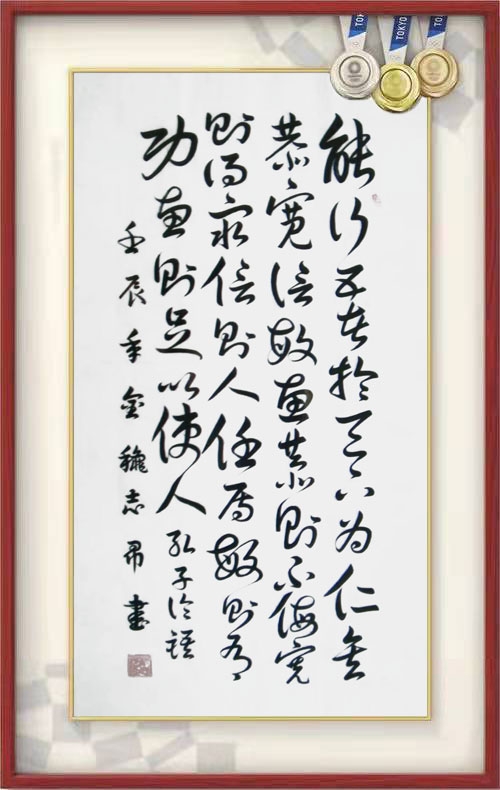 能行五者於天下为仁矣
恭寬信敏惠恭則不侮寬
則得眾信則人任焉敏則有
功惠則足以使人 孔子論語
壬辰年金志書
TOKYO
TOKYO